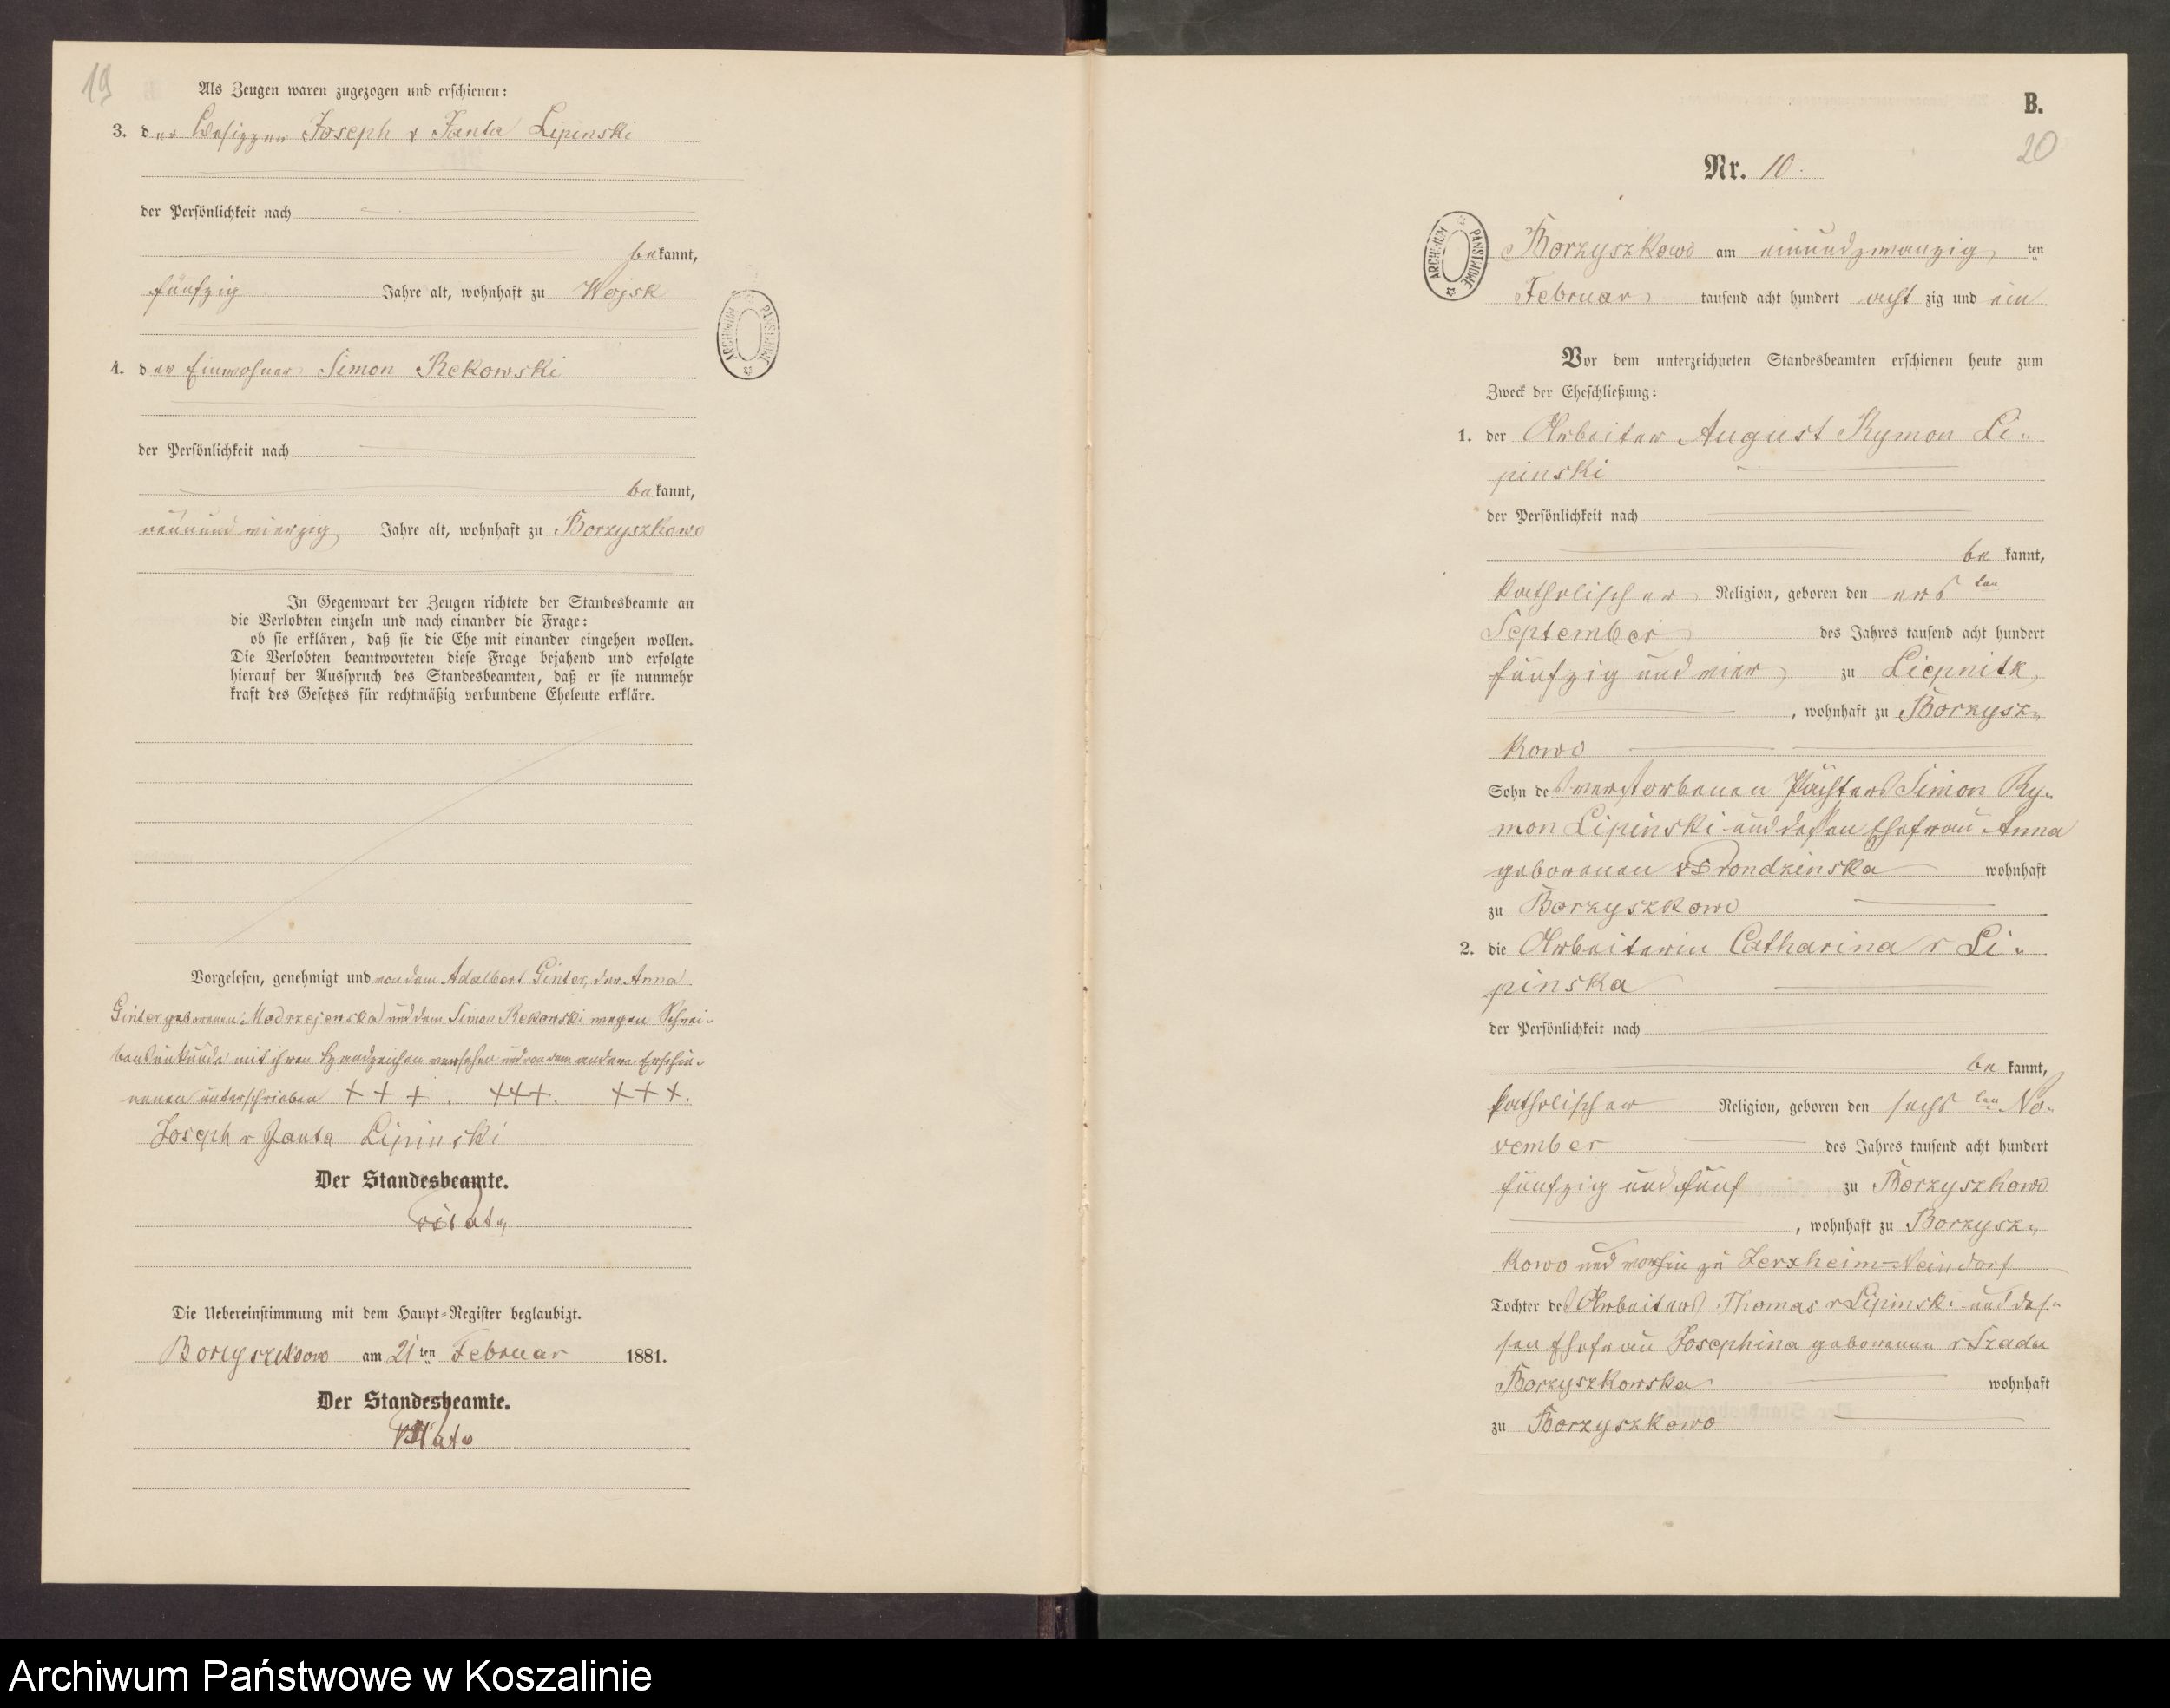 19
Als Zeugen waren zugezogen und erschienen:
3. der Besitzer Joseph v Janta Lipinski
der Persönlichkeit nach
bekannt,
fünfzig Jahre alt, wohnhaft zu Wojsk
4. der Einwohner Simon Rekowski
der Persönlichkeit nach
bekannt,
neunundvierzig Jahre alt, wohnhaft zu Borzyszkowo
In Gegenwart der Zeugen richtete der Standesbeamte an
die Verlobten einzeln und nach einander die Frage:
ob sie erklären, daß sie die Ehe mit einander eingehen wollen.
Die Verlobten beantworteten diese Frage bejahend und erfolgte
hierauf der Ausspruch des Standesbeamten, daß er sie nunmehr
kraft des Gesetzes für rechtmäßig verbundene Eheleute erkläre.
Vorgelesen, genehmigt und von dem Adalbert Ginter, der Anna
Ginter geborenen Modrzejewska und dem Simon Rekowski wegen Schrei-
bensunkunde mit ihren Handzeichen versehen und von dem andern Erschie-
nenen unterschrieben + + + . +++. +++.
Joseph v Janta Lipinski
Der Standesbeamte.
Die Uebereinstimmung mit dem Haupt-Register beglaubigt.
Borzyszkowo am 21ten Februar 1881.
Der Standesbeamte.
B.
20
Nr. 10.
ARCHIWUM PAŃSTWOWE
Borzyszkowo am einundzwanzig ten
Februar tausend acht hundert acht zig und ein
Vor dem unterzeichneten Standesbeamten erschienen heute zum
Zweck der Eheschließung:
1. der Arbeiter August Rymon Li-
pinski
der Persönlichkeit nach
be kannt,
katholischer Religion, geboren den ers ten
September des Jahres tausend acht hundert
fünfzig und vier zu Liepnitz
, wohnhaft zu Borzysz-
kowo
Sohn des verstorbenen Pächters Simon Ry-
mon Lipinski und dessen Ehefrau Anna
geborenen v Prondzinska wohnhaft
zu Borzyszkowo
2. die Arbeiterin Catharina v Li-
pinska
der Persönlichkeit nach
be kannt,
katholischer Religion, geboren den sechs ten No-
vember des Jahres tausend acht hundert
fünfzig und fünf zu Borzyszkowo
, wohnhaft zu Borzysz-
kowo und vorhin zu Jerxheim-Neindorf
Tochter des Arbeiters Thomas v Lipinski und des-
sen Ehefrau Josephina geborenen v Szada
Borzyszkowska wohnhaft
zu Borzyszkowo
Archiwum Państwowe w Koszalinie